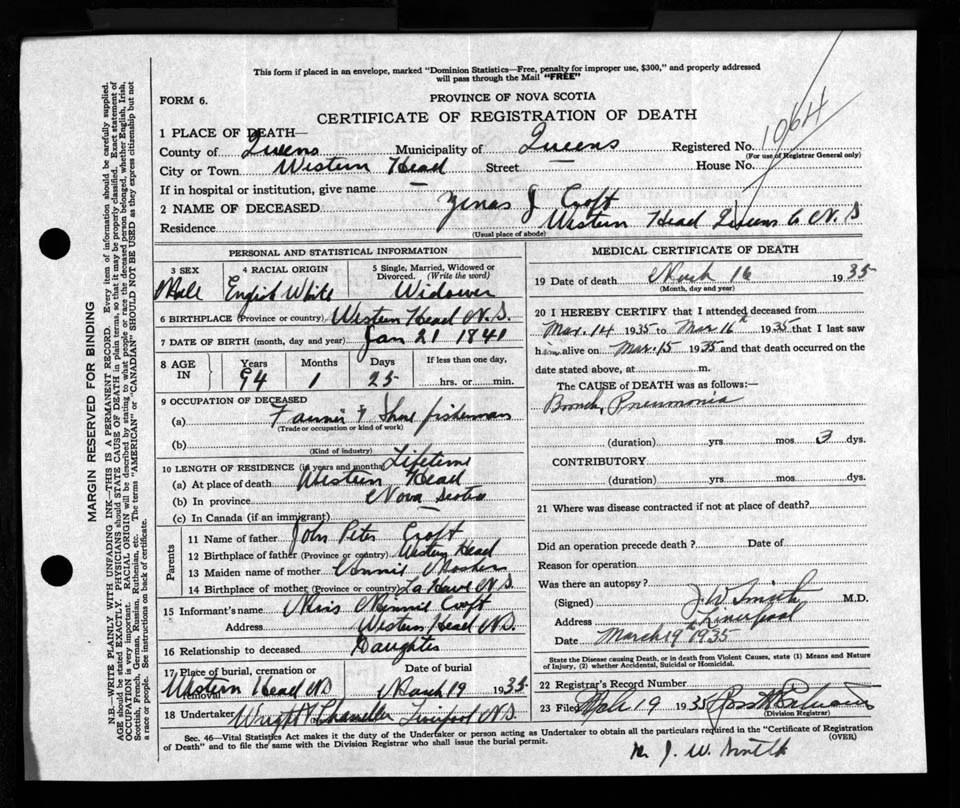 This form if placed in an envelope, marked "Dominion Statistics—Free, penalty for improper use, $300," and properly addressed
will pass through the Mail "FREE"
FORM 6.
PROVINCE OF NOVA SCOTIA
CERTIFICATE OF REGISTRATION OF DEATH
1 PLACE OF DEATH—
County of Queens Municipality of Queens Registered No. 1064
(For use of Registrar General only)
City or Town Western Head Street House No.
If in hospital or institution, give name
2 NAME OF DECEASED Zenas J Croft
Residence Western Head Queens Co N.S
(Usual place of abode)
PERSONAL AND STATISTICAL INFORMATION
3 SEX 4 RACIAL ORIGIN 5 Single, Married, Widowed or
Divorced. (Write the word)
Male English White Widower
6 BIRTHPLACE (Province or country) Western Head N.S.
7 DATE OF BIRTH (month, day and year) Jan 21 1841
8 AGE IN Years Months Days If less than one day,
94 1 25 hrs. or min.
9 OCCUPATION OF DECEASED
(a) Farmer & Shore fisherman
(Trade or occupation or kind of work)
(b)
(Kind of industry)
10 LENGTH OF RESIDENCE (in years and months) Lifetime
(a) At place of death Western Head
(b) In province Nova Scotia
(c) In Canada (if an immigrant)
Parents
11 Name of father John Peter Croft
12 Birthplace of father (Province or country) Western Head
13 Maiden name of mother Mosher
14 Birthplace of mother (Province or country) La Have N.S
15 Informant's name Minnie Croft
Address Western Head N.S.
16 Relationship to deceased Daughter
17 Place of burial, cremation or removal Date of burial
Western Head N.S March 19 1935
18 Undertaker Wright Chandler Liverpool N.S.
MEDICAL CERTIFICATE OF DEATH
19 Date of death March 16 1935
(Month, day and year)
20 I HEREBY CERTIFY that I attended deceased from
Mar. 14 1935 to Mar 16th 1935 that I last saw
him alive on Mar. 15 1935 and that death occurred on the
date stated above, at m.
The CAUSE of DEATH was as follows:—
Bronch. Pneumonia
(duration) yrs. mos 3 dys.
CONTRIBUTORY
(duration) yrs. mos. dys.
21 Where was disease contracted if not at place of death?
Did an operation precede death? Date of
Reason for operation
Was there an autopsy?
(Signed) J. W. Smith M.D.
Address Liverpool
Date March 19th 1935
State the Disease causing Death, or in death from Violent Causes, state (1) Means and Nature
of Injury, (2) whether Accidental, Suicidal or Homicidal.
22 Registrar's Record Number
23 Filed Mch 19 1935
(Division Registrar)
Sec. 46—Vital Statistics Act makes it the duty of the Undertaker or person acting as Undertaker to obtain all the particulars required in the "Certificate of Registration
of Death" and to file the same with the Division Registrar who shall issue the burial permit. (OVER)
J. W. Smith
MARGIN RESERVED FOR BINDING
N.B.—WRITE PLAINLY WITH UNFADING INK—THIS IS A PERMANENT RECORD. Every item of information should be carefully supplied.
AGE should be stated EXACTLY. PHYSICIANS should STATE CAUSE OF DEATH in plain terms, so that it may be properly classified. Exact statement of
OCCUPATION is very important. RACIAL ORIGIN will be described by stating to what people or race the deceased person belonged, whether English, Irish,
Scottish, French, German, Russian, Ruthenian, etc. The terms "AMERICAN" or "CANADIAN" SHOULD NOT BE USED as they express citizenship but not
a race or people. See instructions on back of certificate.